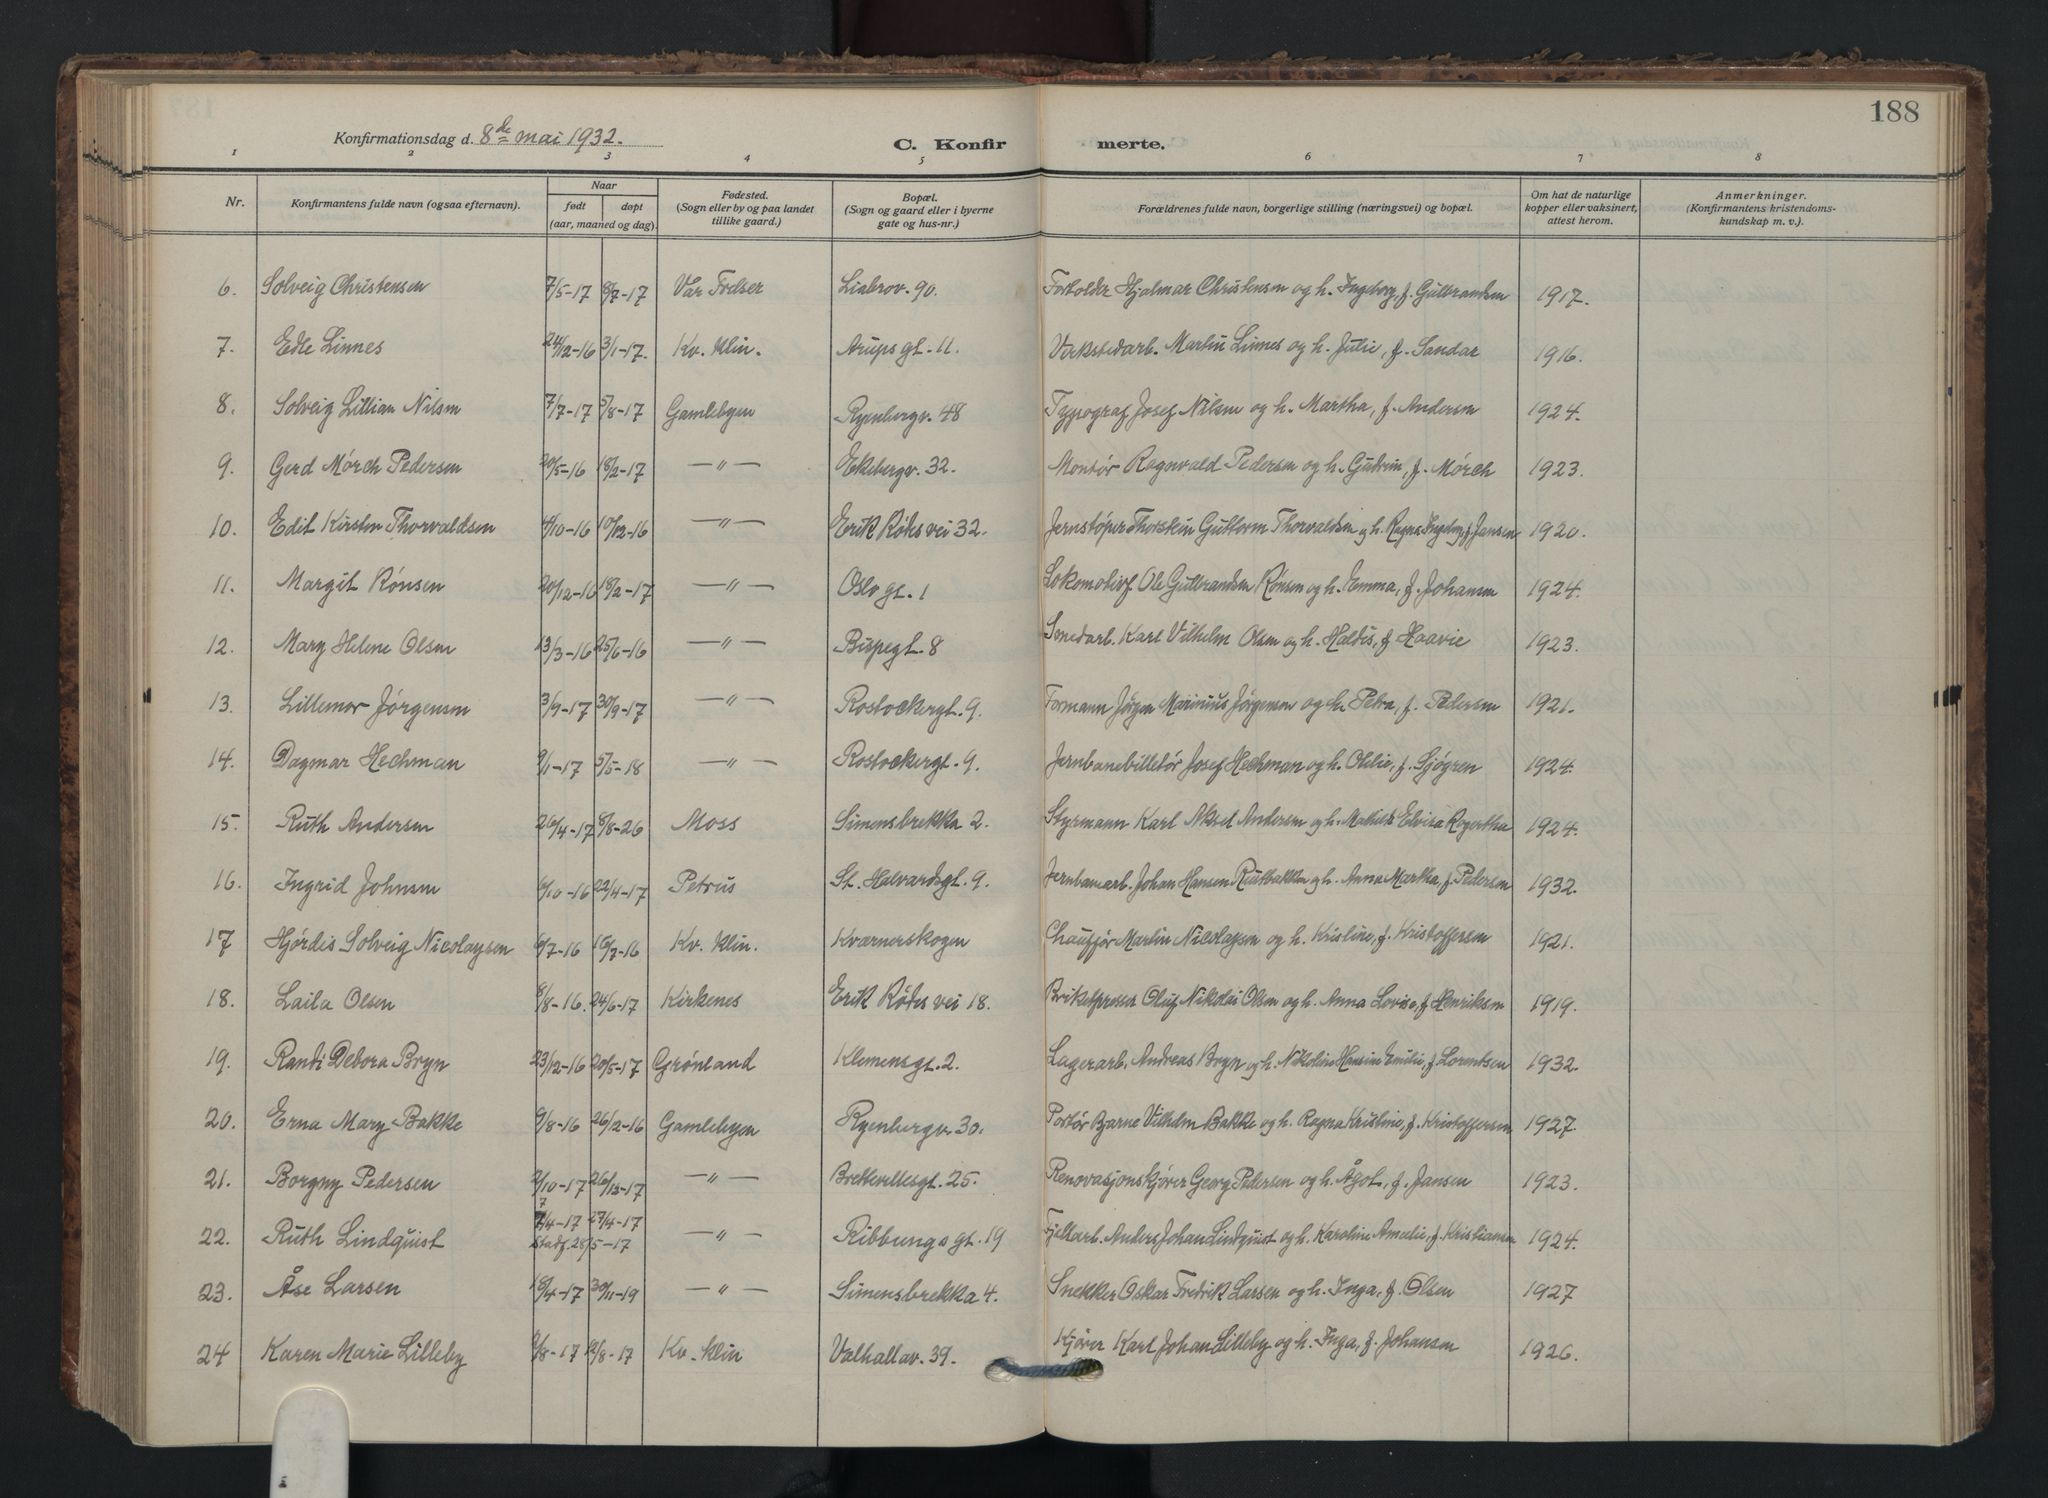 188
Konfirmationsdag d. 8de mai 1932.
C. Konfirmerte.
1 2 3 4 5 6 7 8
Nr.
Konfirmantens fulde navn (ogsaa efternavn).
Naar
født døpt
(aar, maaned og dag).
Fødested.
(Sogn eller by og paa landet
tillike gaard.)
Bopæl.
(Sogn og gaard eller i byerne
gate og hus-nr.)
Forældrenes fulde navn, borgerlige stilling (næringsvei) og bopæl.
Om hat de naturlige
kopper eller vaksinert,
attest herom.
Anmerkninger.
(Konfirmantens kristendoms-
kundskap m. v.).
6. Solveig Christensen 7/5-17 8/7-17 Vår Frelser Liabrov. 90. Hjalmar Christensen og h. Ingeborg, f. Gulbrandsen 1917.
7. Edle Linnes 24/12-16 3/1-17. Kv. klin. Arups gt. 11. Verkstedarb. Martin Linnes og h. Julie, f. Sandar 1916.
8. Solveig Lillian Nilsen 7/7-17 5/8-17 Gamlebyen Ryenbergv. 48 Typograf Josef Nilsen og h. Martha, f. Andersen 1924.
9. Gerd Mørch Pedersen 20/5-16 18/2-17 —"— Ekebergv. 32. Montør Ragnvald Pedersen og h. Gudrun, f. Mørch 1923.
10. Edit Kirsten Thorvaldsen 4/10-16 10/12-16 —"— Erik Rødes vei 32. Jernstøper Thorstein Guttorm Thorvaldsen og h. Ragna Ingeborg, f. Jansen 1920.
11. Margit Rønsen 20/12-16 18/2-17 —"— Oslo gt. 1 Lokomotivf. Ole Gulbrandsen Rønsen og h. Emma, f. Johansen 1924.
12. Mary Helene Olsen 13/3-16 25/6-16 —"— Bispegt. 8 Smedarb. Karl Vilhelm Olsen og h. Haldis, f. Haavie 1923.
13. Lillemor Jørgensen 3/9-17 30/9-17 —"— Rostockergt. 9. Formann Jørgen Marinius Jørgensen og h. Petra, f. Pedersen 1921.
14. Dagmar Hechman 9/1-17 5/5-18 —"— Rostockergt. 9. Jernbanebilletør Josef Hechman og h. Otilie, f. Sjøgren 1924.
15. Ruth Andersen 26/4-17 8/8-26 Moss Simensbrekka 2. Styrmann Karl Aksel Andersen og h. Mathilde Elvira 1924.
16. Ingrid Johnsen 6/10-16 22/4-17 Petrus St. Halvardsgt. 9. Jernbanearb. Johan Hansen og h. Anna Martha, f. Pedersen 1932.
17 Hjørdis Solveig Nicolaysen 6/7-16 16/7-16 Kv. klin. Kværnerskogen Chauffør Martin Nicolaysen og h. Kristine, f. Kristoffersen 1921.
18. Laila Olsen 8/8-16. 24/6-17 Kirkenes Erik Rødes vei 18. Briketpresser Oluf Nikolai Olsen og h. Anna Lovise, f. Henriksen 1919.
19. Randi Debora Bryn 23/12-16 20/5-17 Grønland Klemensgt. 2. Lagerarb. Andreas Bryn og h. Nikoline Hansine Emilie, f. Lorentsen 1932.
20. Erna Mary Bakke 9/8-16 26/12-16 Gamlebyen Ryenbergv. 30. Portør Bjarne Vilhelm Bakke og h. Ragna Kristine, f. Kristoffersen 1927.
21. Borgny Pedersen 2/10-17 26/12-17 —"— Brekkeliesgt. 25. Renovasjonskjører Georg Pedersen og h. Ågot, f. Jansen 1923.
22. Ruth Lindquist 7/4-17 27/4-17 —"— Ribbungs gt. 19 Fjellarb. Anders Johan Lindquist og h. Karoline Amelie, f. Kristiansen 1924.
stadf. 28/5-17
23. Åse Larsen 18/4-17 30/11-19 —"— Simensbrekka 4. Snekker Oskar Fredrik Larsen og h. Inga, f. Olsen 1927
24 Karen Marie Lilleby 2/8-17 12/8-17 Kv. klin Valhallav. 39. Kjører Karl Johan Lilleby og h. Inga, f. Johansen 1926.